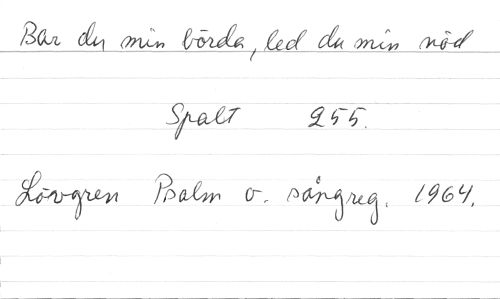 Bar du min börda, led du min nöd
Spalt 255.
Lövgren Psalm o. sångreg. 1964.